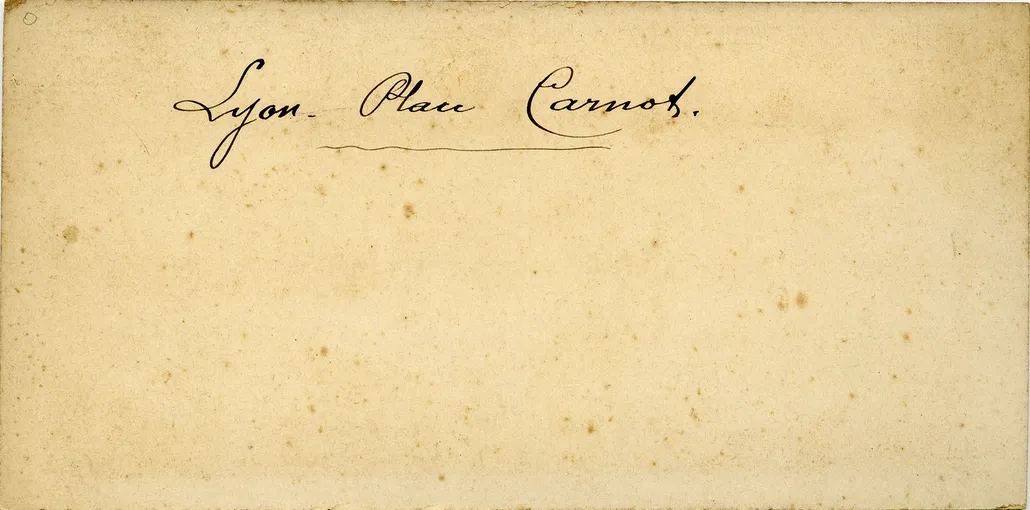 Lyon - Place Carnot.